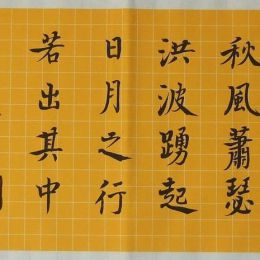 秋風蕭瑟
洪波踴起
日月之行
若出其中